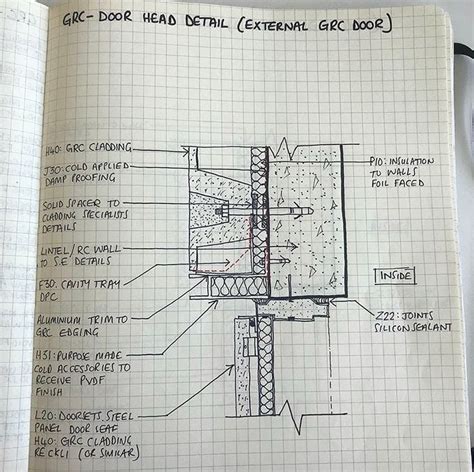 GRC-DOOR HEAD DETAIL (EXTERNAL GRC DOOR)
H40: GRC CLADDING
J30: COLD APPLIED
DAMP PROOFING
SOLID SPACER TO
CLADDING SPECIALISTS
DETAILS
LINTEL/RC WALL
TO S.E DETAILS
F30. CAVITY TRAY
DPC
ALUMINIUM TRIM TO
GRC EDGING
H31: PURPOSE MADE
COLD ACCESSORIES TO
RECEIVE PVDF
FINISH
L20: DOORSETS. STEEL
PANEL DOOR LEAF
H40: GRC CLADDING
RECKLI (OR SIMILAR)
P10: INSULATION
TO WALLS
FOIL FACED
INSIDE
Z22: JOINTS
SILICON SEALANT